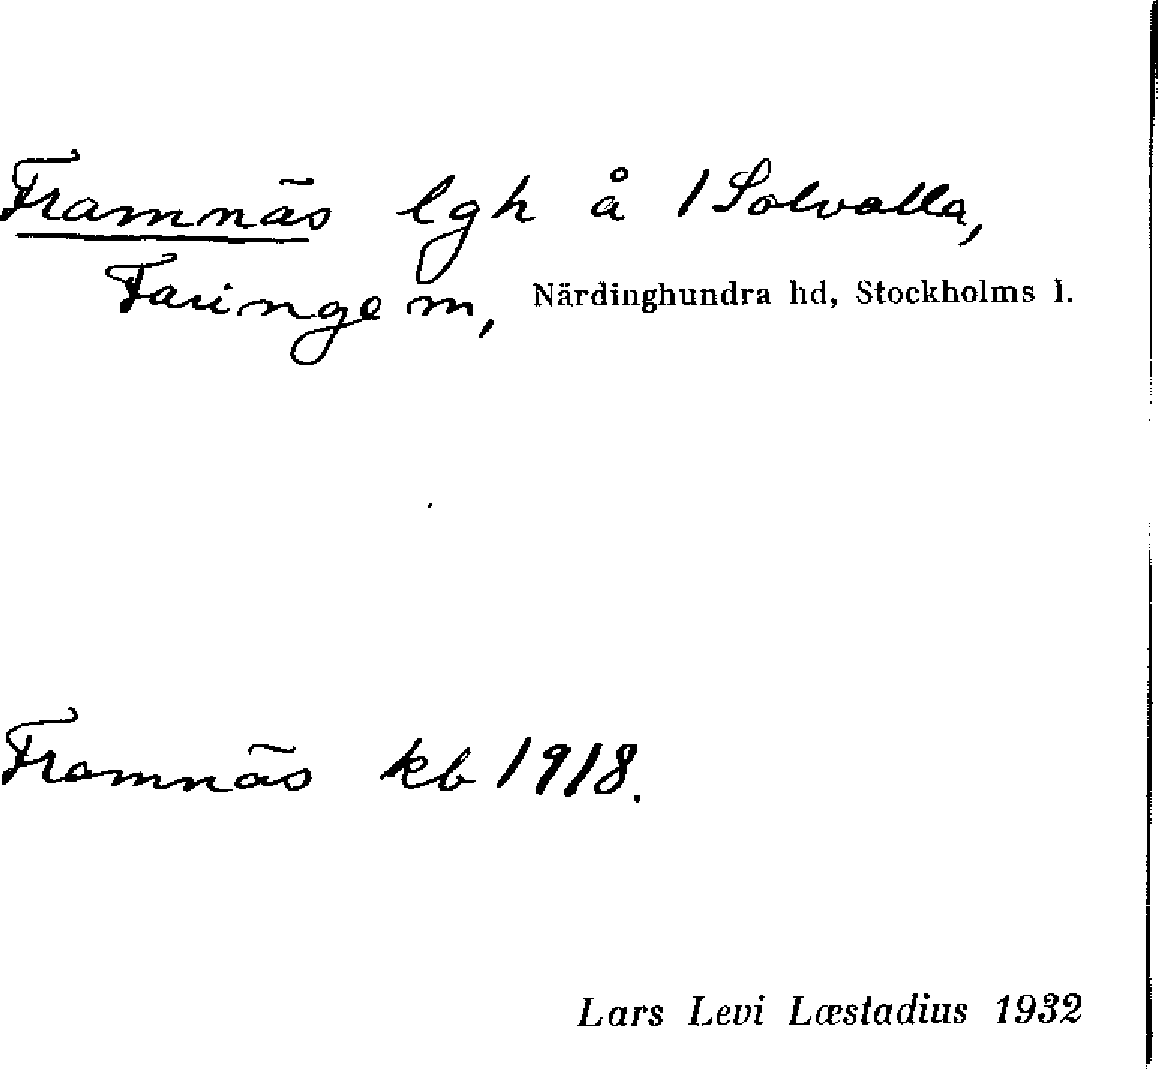 Framnäs lgh å 1 Solvalla,
Faringe sn, Närdinghundra hd, Stockholms l.
Framnäs kb 1918.
Lars Levi Læstadius 1932